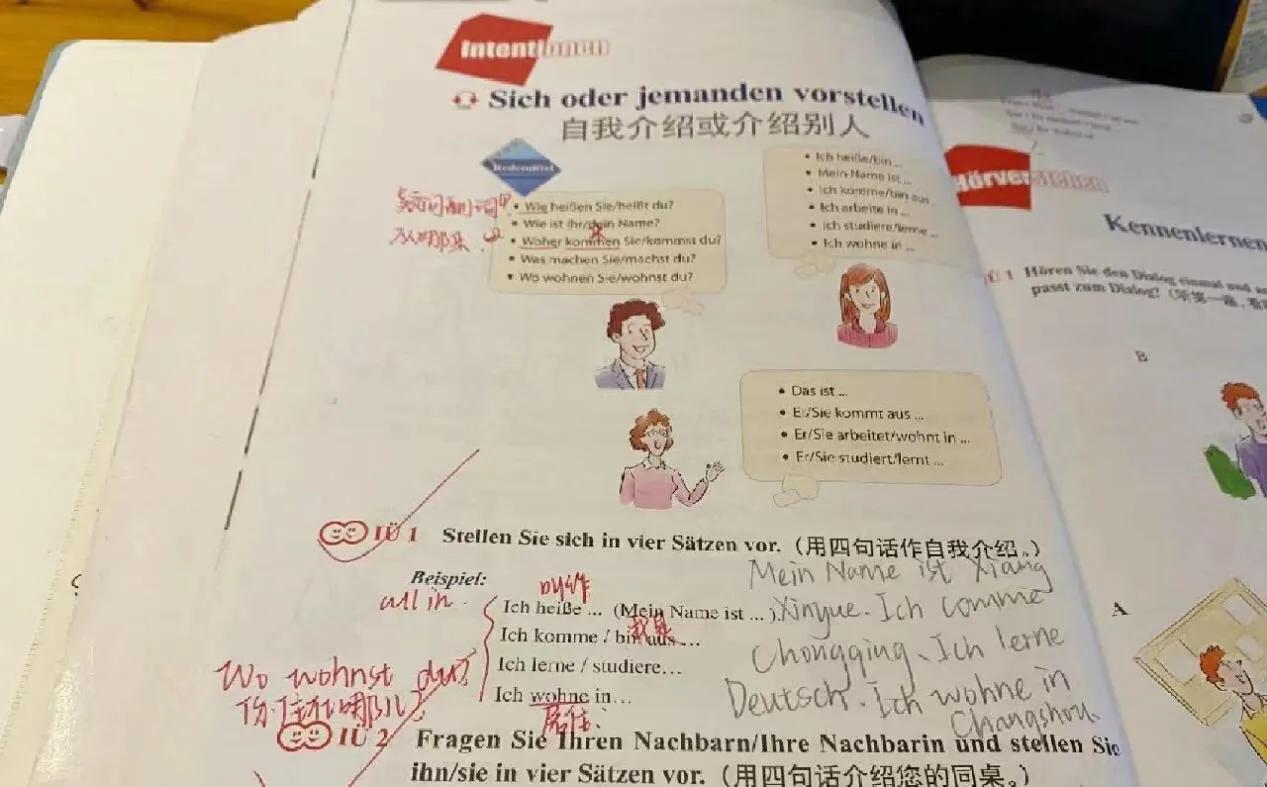 Intentionen
Sich oder jemanden vorstellen
自我介绍或介绍别人
Redemittel
• Wie heißen Sie/heißt du?
• Wie ist Ihr/dein Name?
• Woher kommen Sie/kommst du?
• Was machen Sie/machst du?
• Wo wohnen Sie/wohnst du?
疑问副词
从哪来
来
• Ich heiße/bin ...
• Mein Name ist ...
• Ich komme/bin aus ...
• Ich arbeite in ...
• Ich studiere/lerne ...
• Ich wohne in ...
• Das ist ...
• Er/Sie kommt aus ...
• Er/Sie arbeitet/wohnt in ...
• Er/Sie studiert/lernt ...
IÜ 1 Stellen Sie sich in vier Sätzen vor.（用四句话作自我介绍。）
Beispiel:
all in
叫作
Ich heiße ... (Mein Name ist ... ).
Ich komme / bin aus ...
我是
Ich lerne / studiere...
Ich wohne in...
居住
Mein Name ist Xiang
Xinyue. Ich comme
Chongqing. Ich lerne
Deutsch. Ich wohne in
Changshou.
Wo wohnst du?
你住在哪儿?
IÜ 2 Fragen Sie Ihren Nachbarn/Ihre Nachbarin und stellen Sie
ihn/sie in vier Sätzen vor.（用四句话介绍您的同桌。）
Hörverstehen
Kennenlernen
Ü 1 Hören Sie den Dialog einmal und
passt zum Dialog?（听第一遍，看
B
A